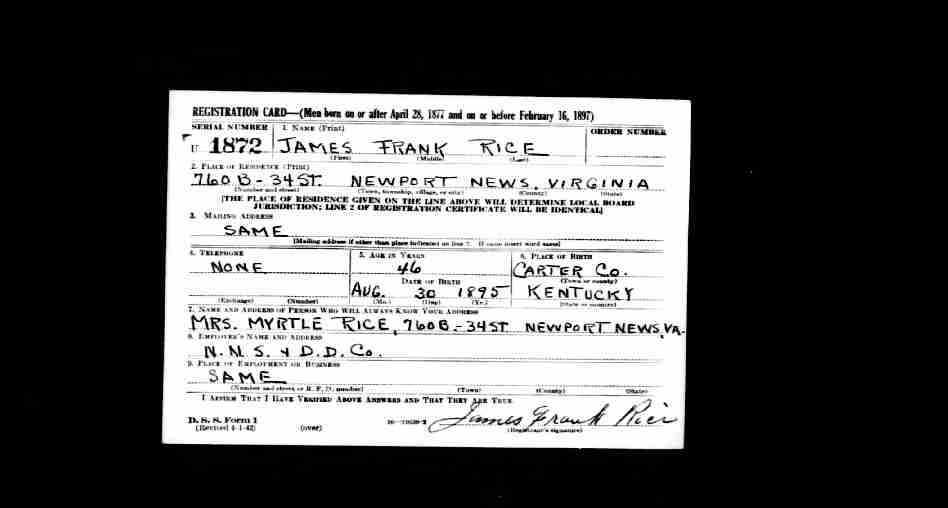 REGISTRATION CARD—(Men born on or after April 28, 1877 and on or before February 16, 1897)
SERIAL NUMBER 1. NAME (Print) ORDER NUMBER
U 1872 JAMES FRANK RICE
(First) (Middle) (Last)
2. PLACE OF RESIDENCE (Print)
760 B - 34 ST. NEWPORT NEWS, VIRGINIA
(Number and street) (Town, township, village, or city) (County) (State)
[THE PLACE OF RESIDENCE GIVEN ON THE LINE ABOVE WILL DETERMINE LOCAL BOARD
JURISDICTION; LINE 2 OF REGISTRATION CERTIFICATE WILL BE IDENTICAL]
3. MAILING ADDRESS
SAME
[Mailing address if other than place indicated on line 2. If same insert word same]
4. TELEPHONE 5. AGE IN YEARS 6. PLACE OF BIRTH
NONE 46 CARTER CO.
DATE OF BIRTH (Town or county)
AUG. 30 1895 KENTUCKY
(Exchange) (Number) (Mo.) (Day) (Yr.) (State or country)
7. NAME AND ADDRESS OF PERSON WHO WILL ALWAYS KNOW YOUR ADDRESS
MRS. MYRTLE RICE, 760 B - 34 ST NEWPORT NEWS, VA.
8. EMPLOYER'S NAME AND ADDRESS
N. N. S. & D. D. Co.
9. PLACE OF EMPLOYMENT OR BUSINESS
SAME
(Number and street or R. F. D. number) (Town) (County) (State)
I AFFIRM THAT I HAVE VERIFIED ABOVE ANSWERS AND THAT THEY ARE TRUE.
D. S. S. Form 1 James Frank Rice
(Revised 4-1-42) (over) (Registrant's signature)